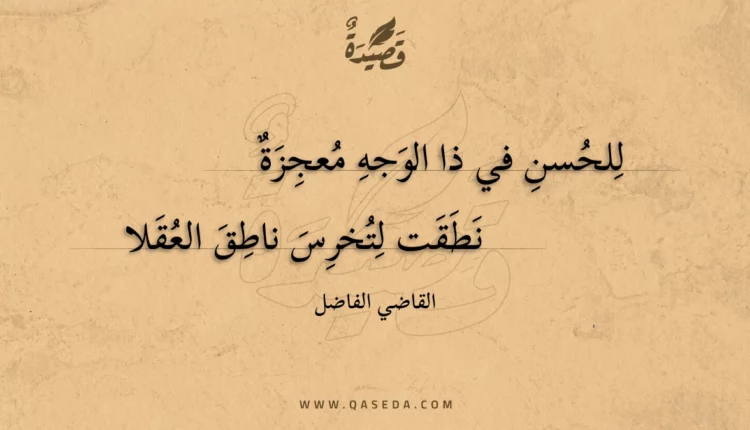 قَصِيدَةٌ
لِلحُسنِ في ذا الوَجهِ مُعجِزَةٌ
نَطَقَت لِتُخرِسَ ناطِقَ العُقَلا
القاضي الفاضل
WWW.QASEDA.COM